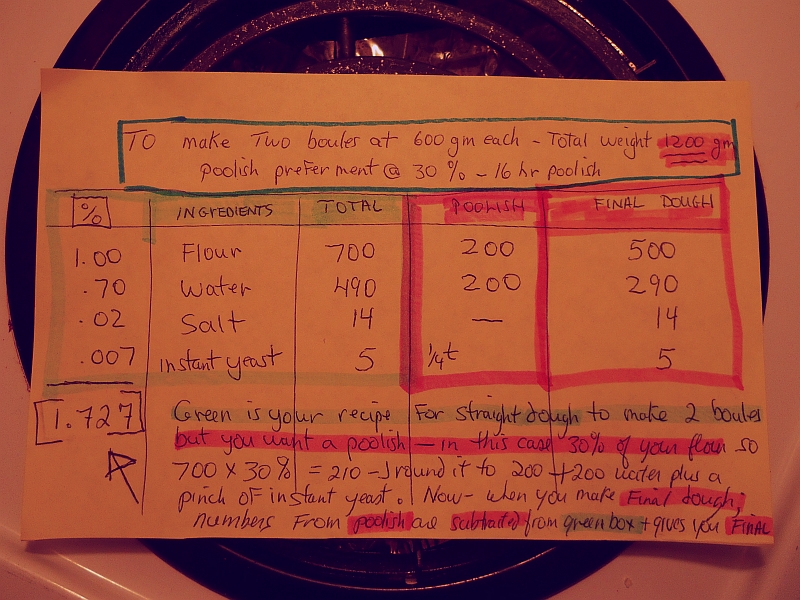 TO make Two boules at 600 gm each - Total weight 1200 gm
poolish preferment @ 30% - 16 hr poolish
% INGREDIENTS TOTAL POOLISH FINAL DOUGH
1.00 Flour 700 200 500
.70 Water 490 200 290
.02 Salt 14 — 14
.007 instant yeast 5 1/4t 5
1.727
Green is your recipe For straight dough to make 2 boules
but you want a poolish — in this case 30% of your flour so
700 X 30% = 210 - I round it to 200 + 200 water plus a
pinch OF instant yeast. Now - when you make Final dough,
numbers From poolish are subtracted from green box + gives you FINAL